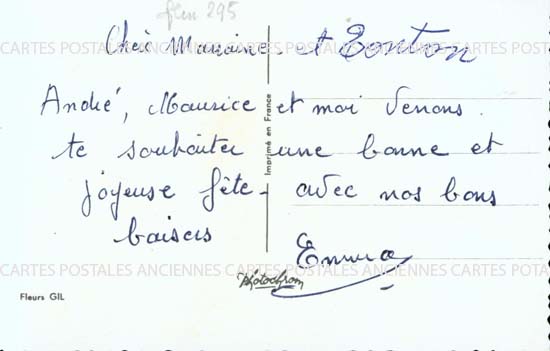 flen 295
Chère Marraine et Tonton
André, Maurice et moi venons
te souhaiter une bonne et
joyeuse fête - avec nos bons
baisers
Emma
Imprimé en France
Photochrom
Fleurs GIL
CARTES POSTALES ANCIENNES CARTES POSTALES ANCIENNES CARTES POSTALES
CARTES POSTALES ANCIENNES CARTES POSTALES ANCIENNES CARTES POSTALES
CARTES POSTALES ANCIENNES CARTES POSTALES ANCIENNES CARTES POSTALES